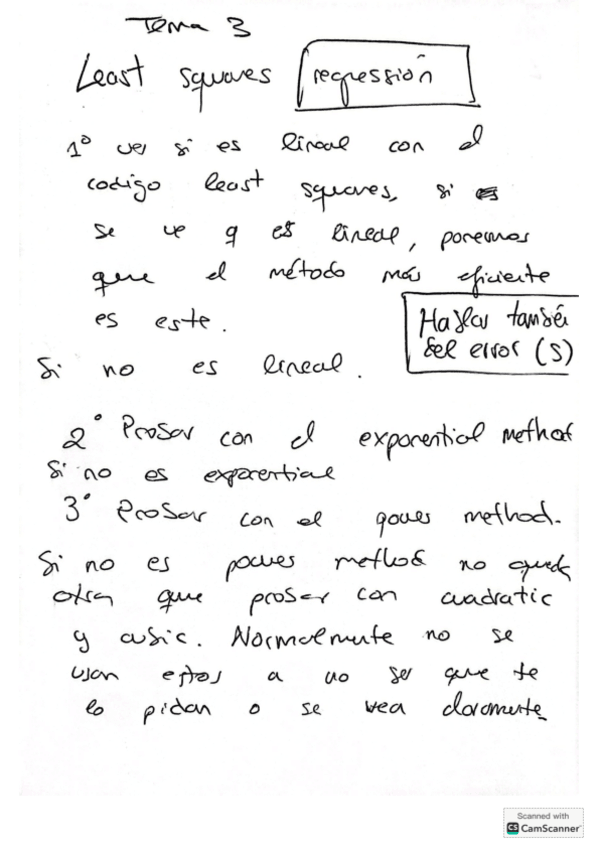 Tema 3
Least squares regressión
1º ver si es lineal con el
codigo least squares, si es
se ve q es lineal, ponemos
que el método más eficiente
es este.
Hablar también
del error (S)
Si no es lineal.
2º Probar con el exponential method
Si no es exponential
3º Probar con el power method.
Si no es power method no queda
otra que probar con cuadratic
y cubic. Normalmente no se
usan estos a no ser que te
lo pidan o se vea claramente
Scanned with
CS CamScanner